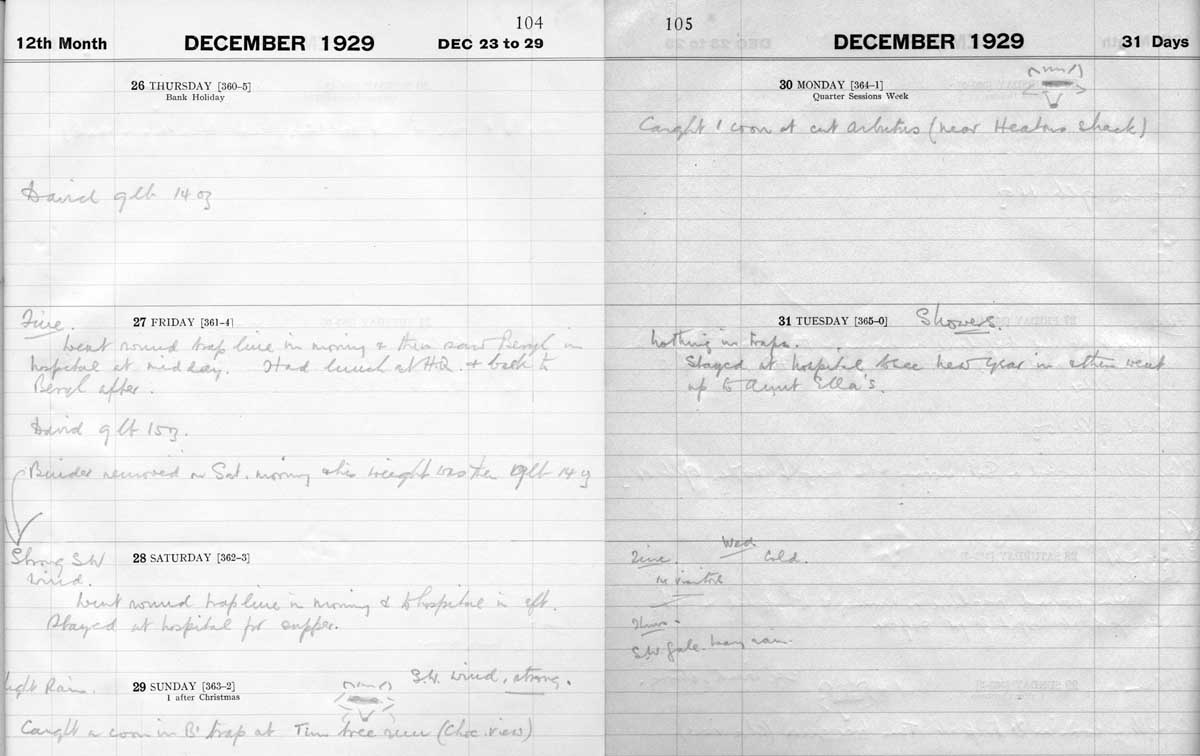 104
12th Month DECEMBER 1929 DEC 23 to 29
26 THURSDAY [360-5]
Bank Holiday
David 9lb 14 oz
Fine.
27 FRIDAY [361-4]
Went round trap line in morning & then saw Beryl in
hospital at midday. Had lunch at H.Q. & back to
Beryl after.
David 9lb 15 oz.
Binder removed on Sat. morning & his weight was then 9lb 14 oz
Strong S.W
wind.
28 SATURDAY [362-3]
Went round trap line in morning & to hospital in aft.
Stayed at hospital for supper.
Light Rain.
29 SUNDAY [363-2]
1 after Christmas
S.W. wind, strong.
Caught a coon in B' trap at tree (Choc. view)
105
DECEMBER 1929 31 Days
30 MONDAY [364-1]
Quarter Sessions Week
Caught 1 coon at cut arbutus (near Heatons shack)
31 TUESDAY [365-0] Showers.
Nothing in traps.
Stayed at hospital to see new year in & then went
up to Aunt Ella's.
Wed
Fine. Cold.
visitors
Thurs.
S.W. gale. heavy rain.